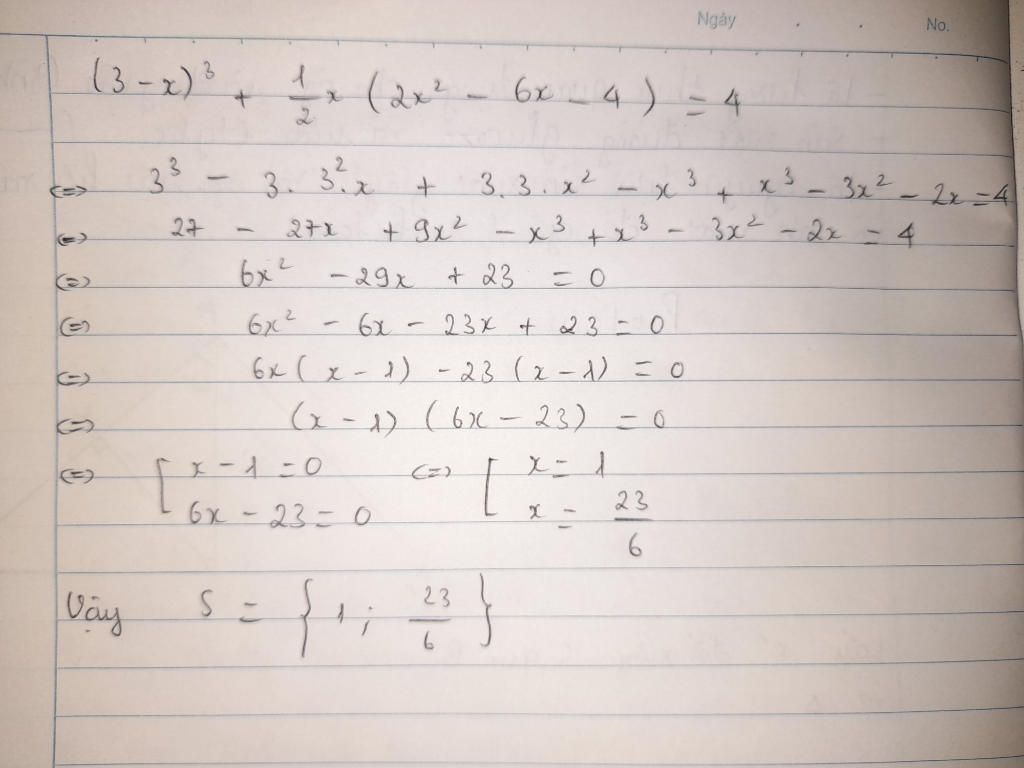 Ngày . . No.
(3 - x)³ + 1/2 x (2x² - 6x - 4) = 4
<=> 3³ - 3. 3².x + 3.3.x² - x³ + x³ - 3x² - 2x = 4
<=> 27 - 27x + 9x² - x³ + x³ - 3x² - 2x = 4
<=> 6x² - 29x + 23 = 0
<=> 6x² - 6x - 23x + 23 = 0
<=> 6x(x - 1) - 23(x - 1) = 0
<=> (x - 1)(6x - 23) = 0
<=> [ x - 1 = 0 <=> [ x = 1
6x - 23 = 0 x = 23/6
Vậy S = {1; 23/6}